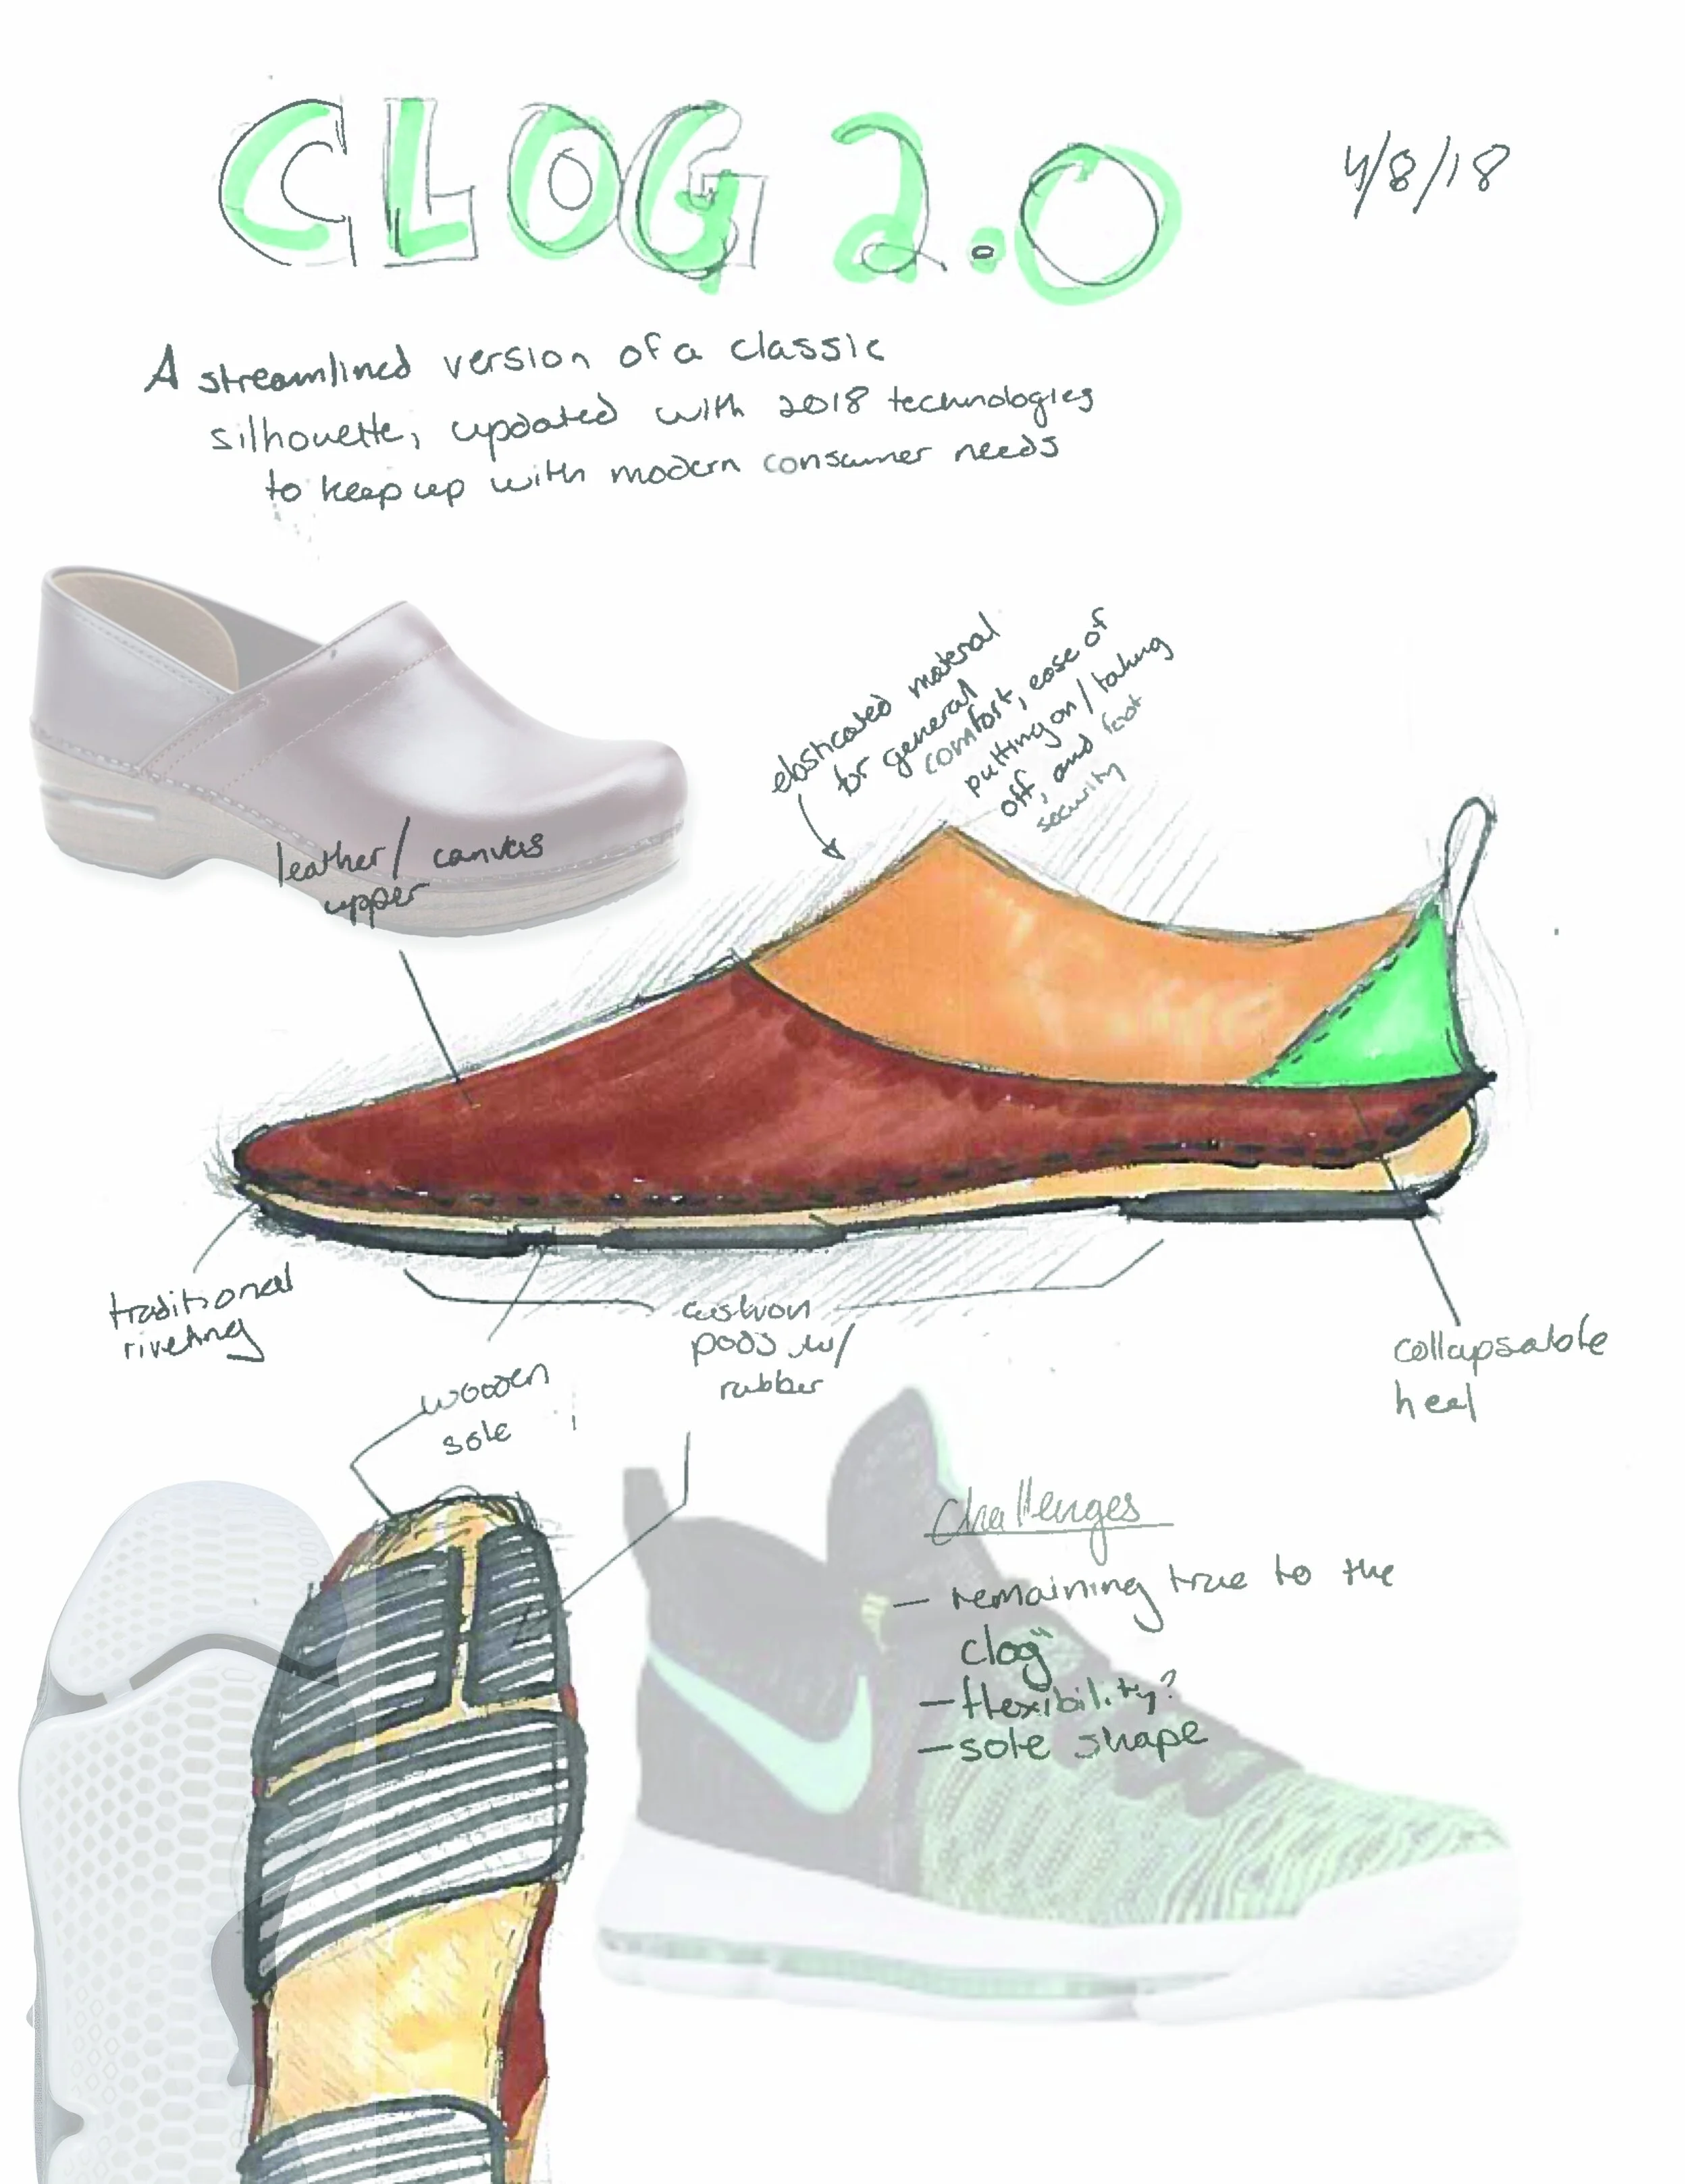 CLOG 2.0
4/8/18
A streamlined version of a classic
silhouette, updated with 2018 technologies
to keep up with modern consumer needs
elasticated material
for general
comfort, ease of
putting on/taking
off, and foot
security
leather/canvas
upper
traditional
riveting
wooden
sole
cushion
pods w/
rubber
collapsable
heel
Challenges
- remaining true to the
clog"
- flexibility?
- sole shape